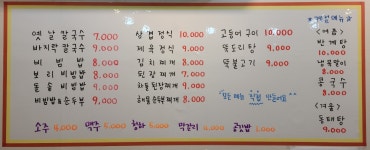 옛날칼국수 7,000
바지락칼국수 9,000
비빔밥 8,000
보리비빔밥 8,000
돌솥비빔밥 9,000
비빔밥&순두부 9,000
삼겹정식 10,000
제육정식 9,000
김치찌개 8,000
된장찌개 7,000
차돌된장찌개 9,000
해물순두부찌개 8,000
고등어구이 10,000
뚝도리탕 9,000
뚝불고기 9,000
모든메뉴 직접 만들어요^^
*계절메뉴*
<여름>
반계탕 10,000
냉묵밀이 8,000
콩국수 8,000
<겨울>
동태탕 9,000
소주 4,000 맥주 5,000 청하 5,000 막걸리 4,000 공기밥 1,000